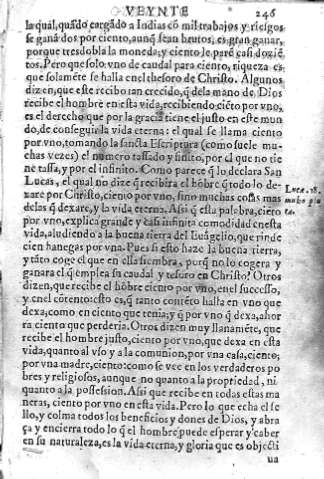 VEYNTE 246
la qual, quādo cargādo a Indias cō mil trabajos y riesgos
se ganā dos por ciento, aunq̃ sean brutos, es gran ganar,
porque tresdobla la moneda, y ciento le parē casi dozie
tos. Pero que solo vno de caudal para ciento, riqueza es
que solamēte se halla en el thesoro de Christo. Algunos
dizen, que este recibo tan crecido, q̃ de la mano de Dios
recibe el hombre en esta vida, recibiendo ciēto por vno,
es el derecho que por la gracia tiene el justo en este mun
do, de conseguir la vida eterna: el qual se llama ciento
por vno, tomando la sancta Escriptura (como suele mu
chas vezes) el numero tassado y finito, por el que no tie
ne tassa, y por el infinito. Como parece q̃ lo declara San
Lucas, el qual no dize q̃ recibira el hōbre q̃ todo lo de
xaré por Christo, ciento por vno, sino muchas cosas mas
Luce. 18.
delas q̃ dexare, y la vida eterna. Assi q̃ esta palabra, ciēto
por vno, explica grande y casi infinita comodidad en esta
vida, aludiendo a la buena tierra del Euāgelio, que rinde
cien hanegas por vna. Pues si esto haze la buena tierra,
y tāto coge el que en ella siembra, porq̃ no lo cogera y
ganara el q̃ emplea su caudal y tesoro en Christo? Otros
dizen, que recibe el hōbre ciento por vno, en el successo,
y en el cōtento: esto es, q̃ tanto contēto halla en vno que
dexa, como en ciento que tenia; y q̃ por vno q̃ dexa, aho
ra ciento que perderia. Otros dizen muy llanamēte, que
recibe el hombre justo, ciento por vno, que dexa en esta
vida, quanto al vso y a la comunion, por vna casa, ciento;
por vna madre, ciento: como se vee en los verdaderos po
bres y religiosos, aunque no quanto a la propriedad, ni
quanto a la possession. Assi que recibe en todas estas ma
neras, ciento por vno en esta vida. Pero lo que echa el se
llo, y colma todos los beneficios y dones de Dios, y abra
ça y encierra todo lo q̃ el hombre puede esperar y caber
en su naturaleza, es la vida eterna, y gloria que es objecti
ua